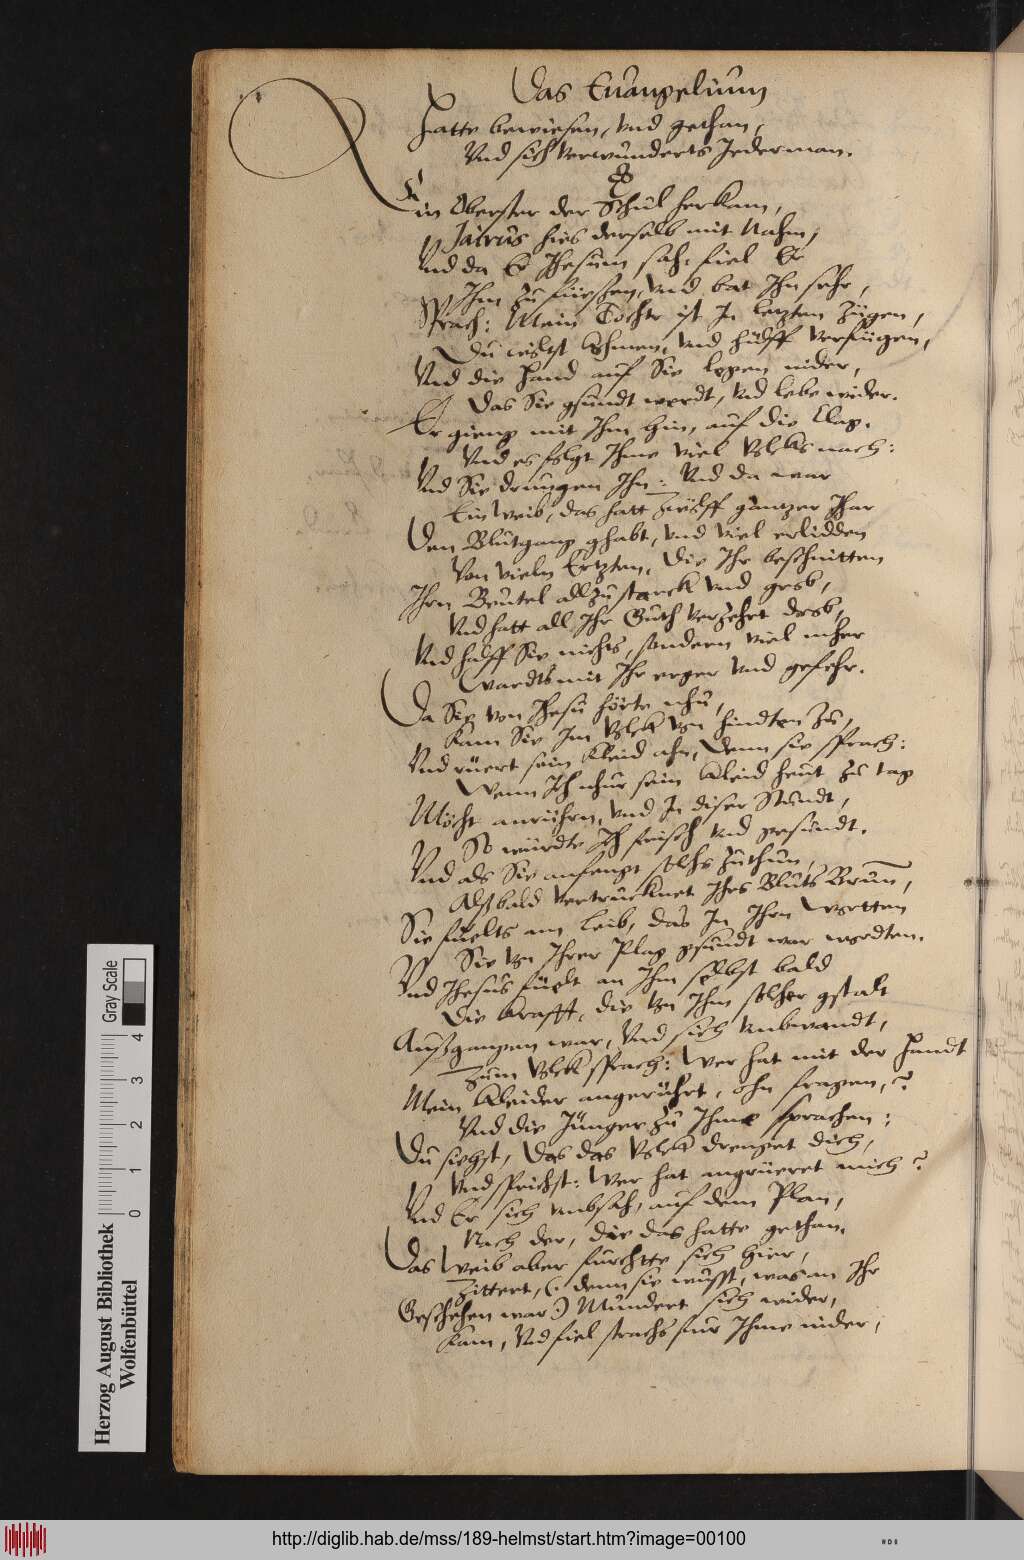 Das Euangelium
Hatte bewiesen, Vnd gethan,
Vnd sich verwunderts Jederman.
Ein Oberster der Schul herkam,
Jairus hies derselb mit Nahm,
Vnd da Er Jhesum sah, fiel Er
Jhm zu füeßen, Vnd bat Jhn sehr,
Sprach: Mein Tochtr ist Jn letzten Zügen,
Du wölst khomen, Vnd hülff verfügen,
Vnd die Hand auf Sie legen nider,
Das Sie gsundt werdt, Vnd lebe wider.
Er gieng mit Jhm hin, auf die Clag,
Vnd es folgt Jhme viel Volcks nach:
Vnd Sie drungen Jhn: Vnd da war
Ein Weib, das hatt Zwölff gantzer Jhar
Den Blutgang ghabt, Vnd viel erlidden
Von vieln Ertzten, Die Jhr beschnitten
Jhrn Beutel allzu starck Vnd grob,
Vnd hatt all Jhr Guth verzehrt drob,
Vnd halff Sie nichts, sondern viel mher
Wardts mit Jhr erger Vnd gefehr.
Da Sie von Jhesu hörte nhu,
Kam Sie Jm Volck von hindten zu,
Vnd rüert sein Kleid ahn, Denn sie sprach:
Wenn Jch nhur sein Kleid heut zu tag
Möcht anrührn, Vnd Jn diser Stundt,
So würdte Jch frisch Vnd gesundt.
Vnd als Sie anfengt solchs zuthun,
Alßbald vertrucknet Jhrs Bluts Brun,
Sie fuelts am Leib, das Jn Jhrn Wortten
Sie von Jhrer Plag gsundt war wordten.
Vnd Jhesus füelt an Jhm selbst bald
Die Krafft, die von Jhm solcher gstalt
Außgangen war, Vnd sich Vmbwandt,
Zum Volck sprach: Wer hat mit der Handt
Mein Kleider angerührt, ohn fragen,?
Vnd die Jünger zu Jhme sprachen:
Du siehst, Das das Volck drenget dich,
Vnd sprichst: Wer hat angrüeret mich?
Vnd Er sich Vmbsah, auf dem Plan,
Nach der, die das hatte gethan.
Das Weib aber furchtte sich hier,
Zittert, (: denn sie wusst, was an Jhr
Geschehen war :) Mundert sich wider,
Kam, Vnd fiel strachs fur Jhme nider,
Herzog August Bibliothek
Wolfenbüttel
0 1 2 3 4
Gray Scale
http://diglib.hab.de/mss/189-helmst/start.htm?image=00100